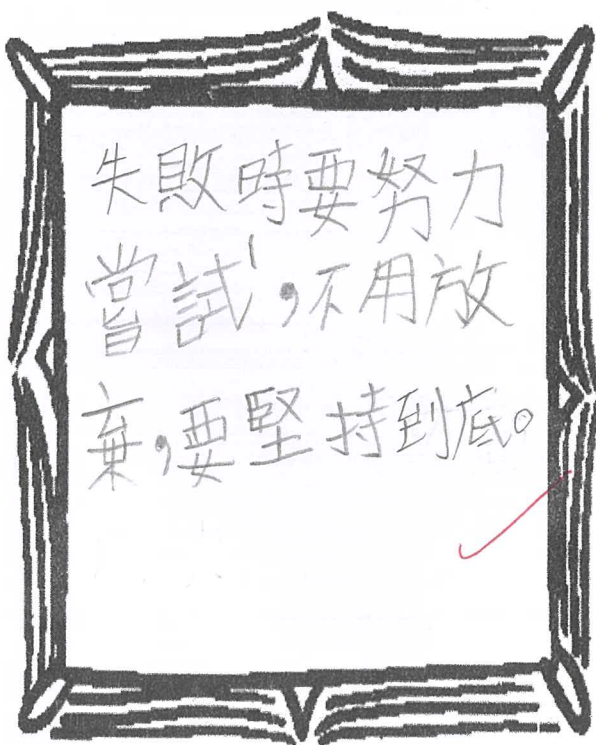 失敗時要努力
嘗試，不用放
棄，要堅持到底。